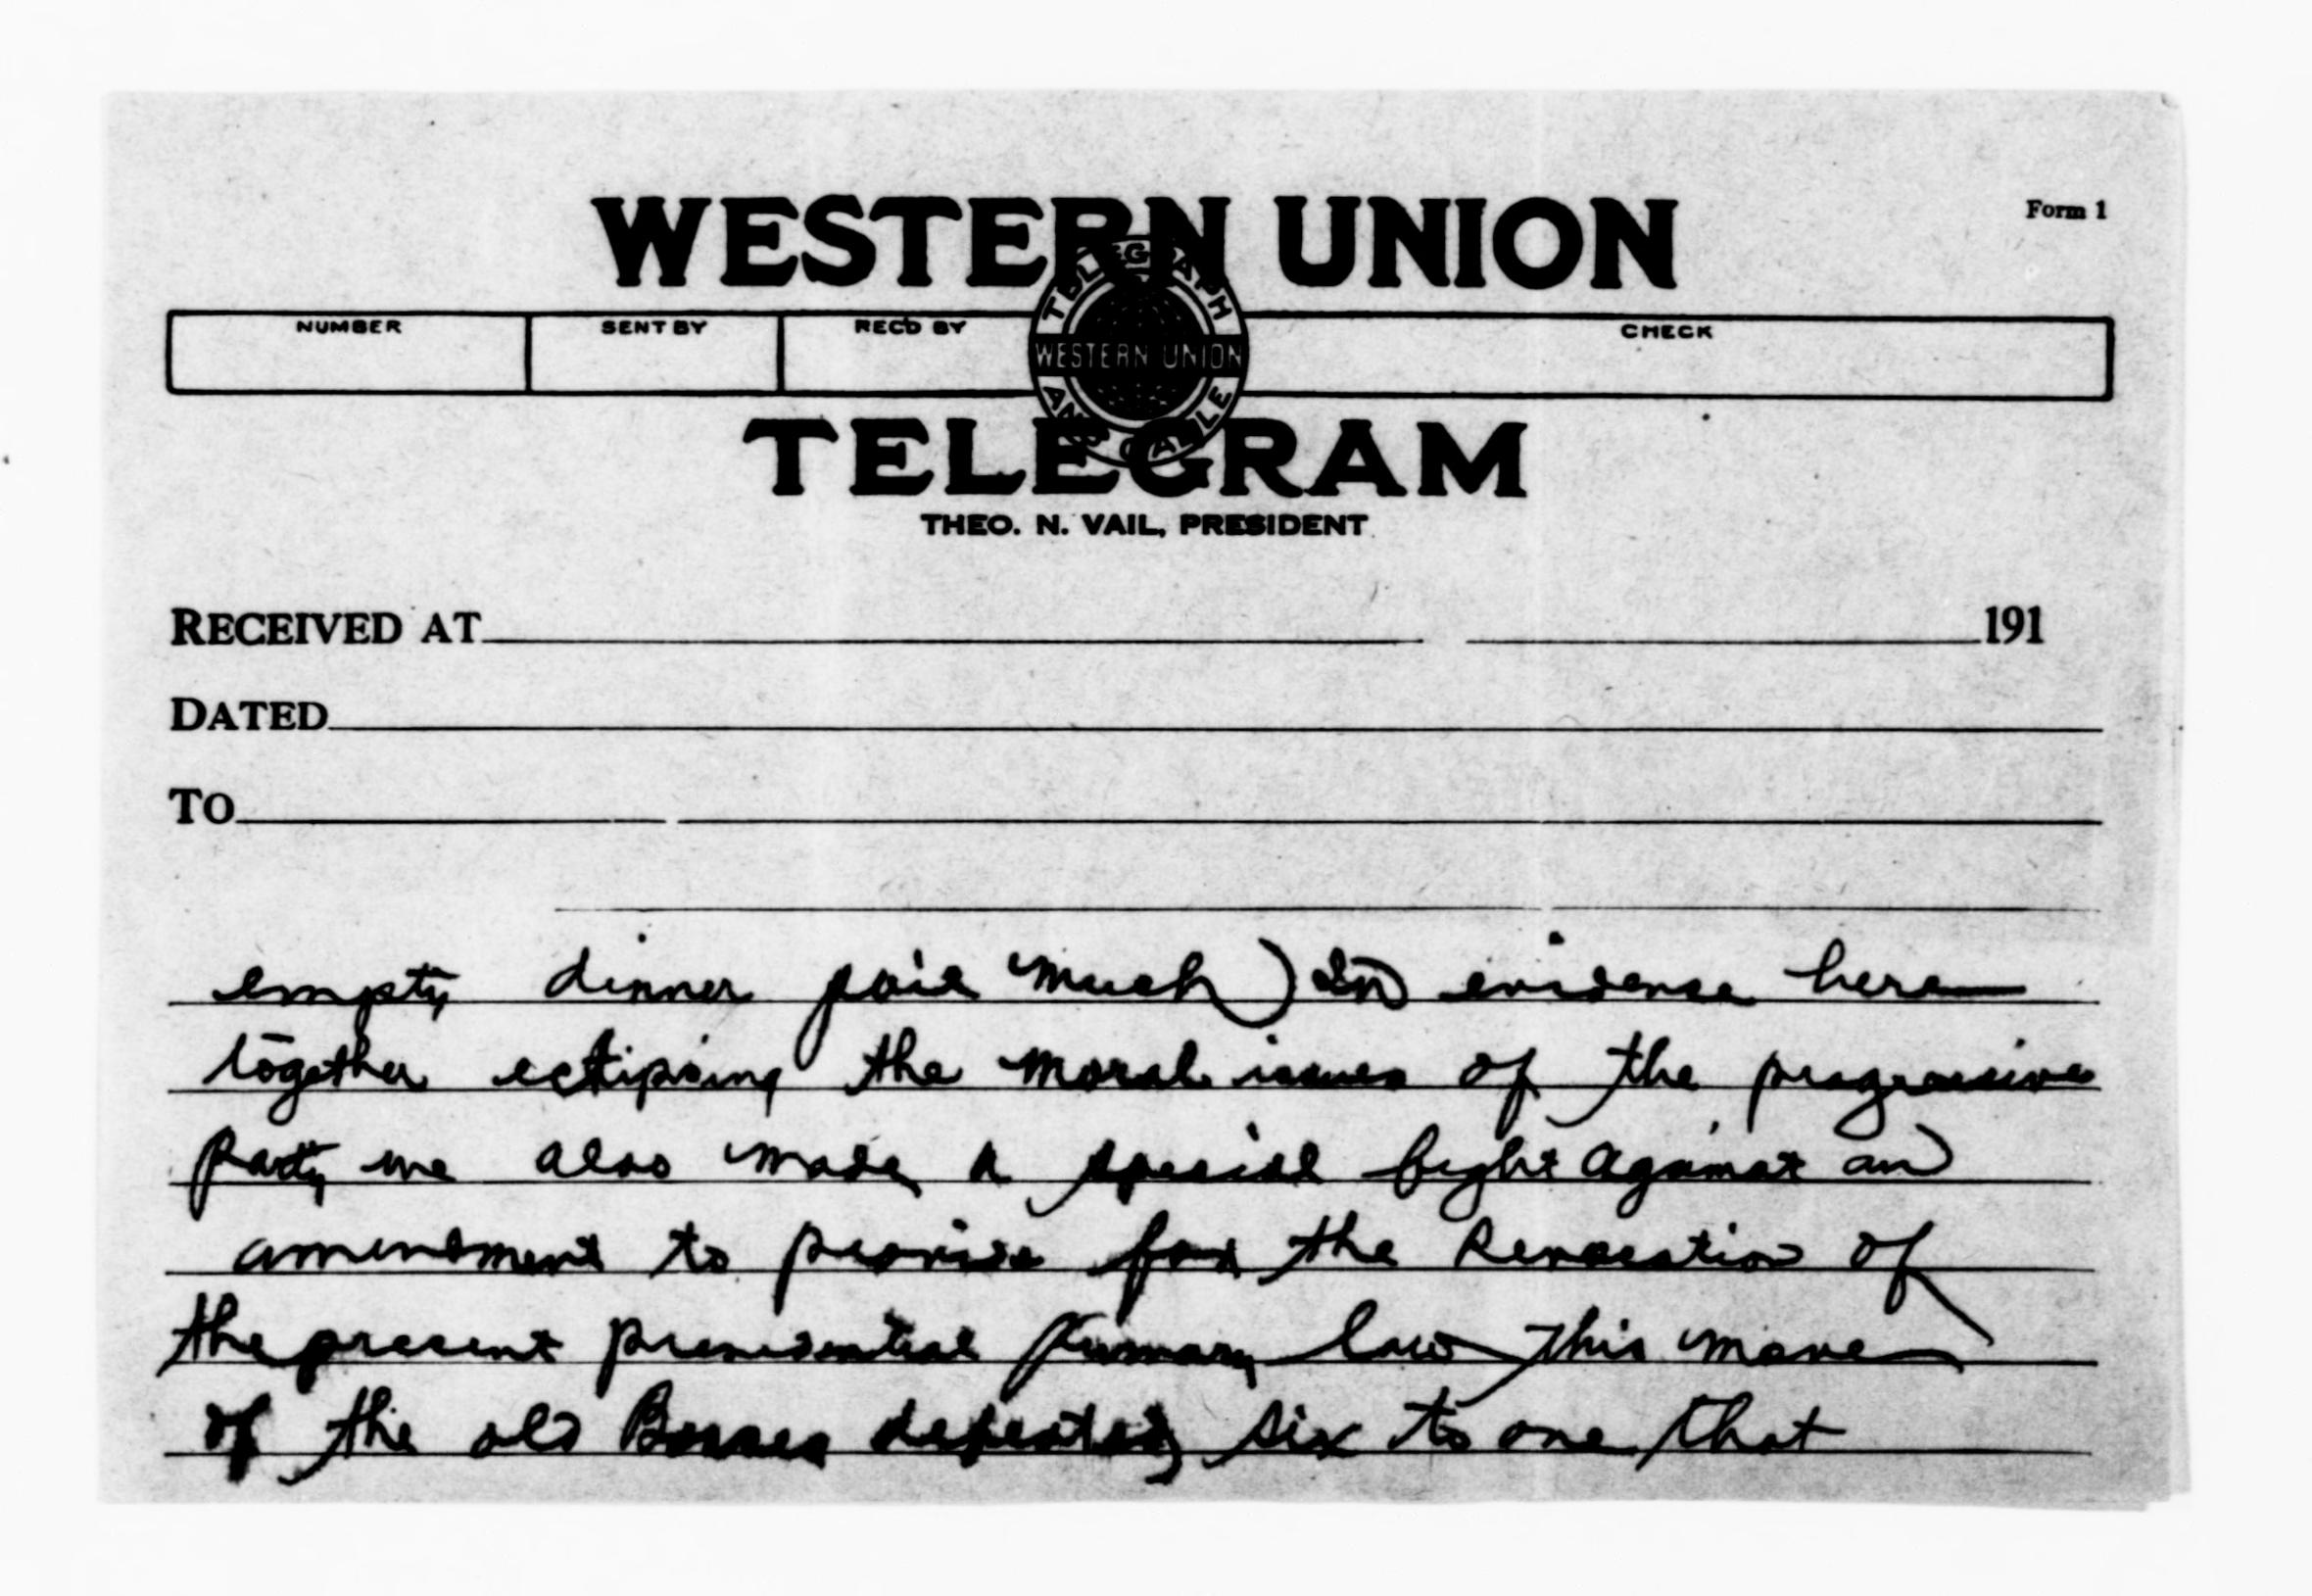 WESTERN UNION
Form 1
NUMBER SENT BY REC'D BY CHECK
TELEGRAPH
WESTERN UNION
AND CABLE
TELEGRAM
THEO. N. VAIL, PRESIDENT
RECEIVED AT 191
DATED
TO
empty dinner pail much in evidence here
together eclipsing the moral issues of the progressive
party we also made a special fight against an
amendment to provide for the Revocation of
the present presidential primary law this move
of the old Bosses defeated six to one that